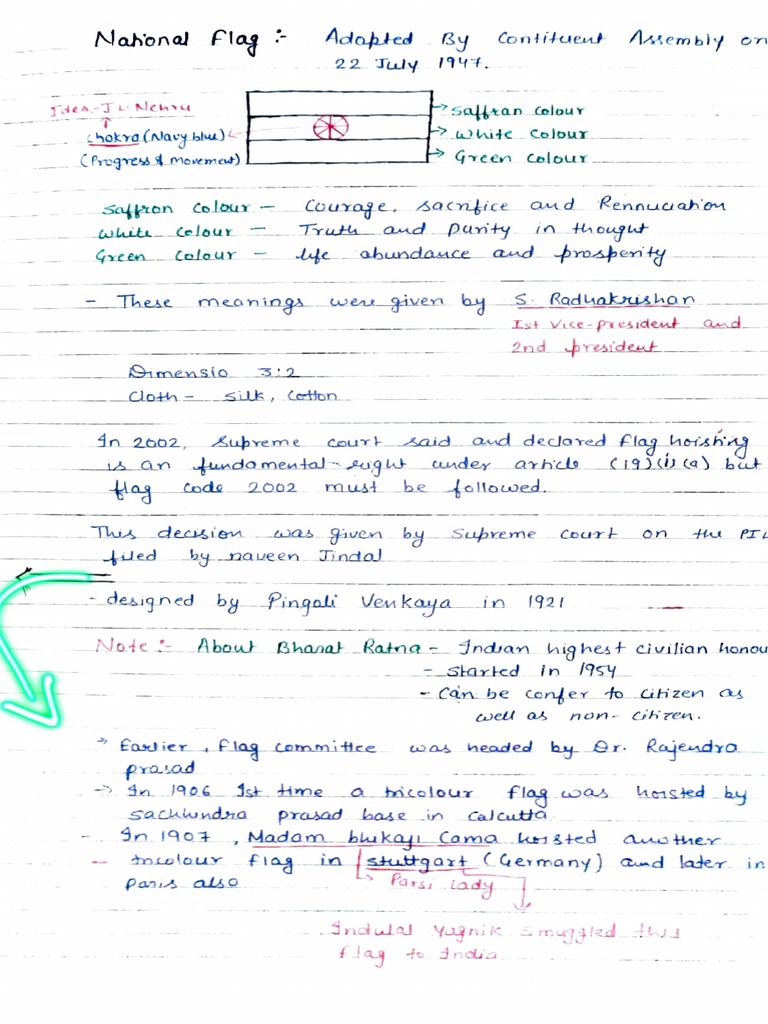 National Flag :- Adapted By Contituent Assembly on
22 July 1947.
Idea - J.L. Nehru
Chakra (Navy blue)
(Progress & movement)
Saffran Colour
White Colour
Green Colour
Saffron Colour - Courage, sacrifice and Rennuciation
White Colour - Truth and purity in thought
Green Colour - life abundance and prosperity
- These meanings were given by S. Radhakrishan
Ist Vice-president and
2nd president
Dimensio 3:2
Cloth - silk, Cotton
In 2002, Supreme court said and declared flag hoisting
is an fundamental-right under article (19)(i)(a) but
flag code 2002 must be followed.
This decision was given by Supreme court on the PIL
filed by naveen Jindal
- designed by Pingali Venkaya in 1921
Note :- About Bharat Ratna - Indian highest civilian honou
- started in 1954
- Can be confer to citizen as
well as non-citizen.
→ Earlier, Flag committee was headed by Dr. Rajendra
prasad
→ In 1906 Ist time a tricolour flag was hoisted by
sachhindra prasad base in Calcutta
- In 1907, Madam bhikaji Cama hoisted another
tricolour flag in stuttgart (Germany) and later in
paris also
Parsi lady
Indulal Yagnik smuggled this
flag to India